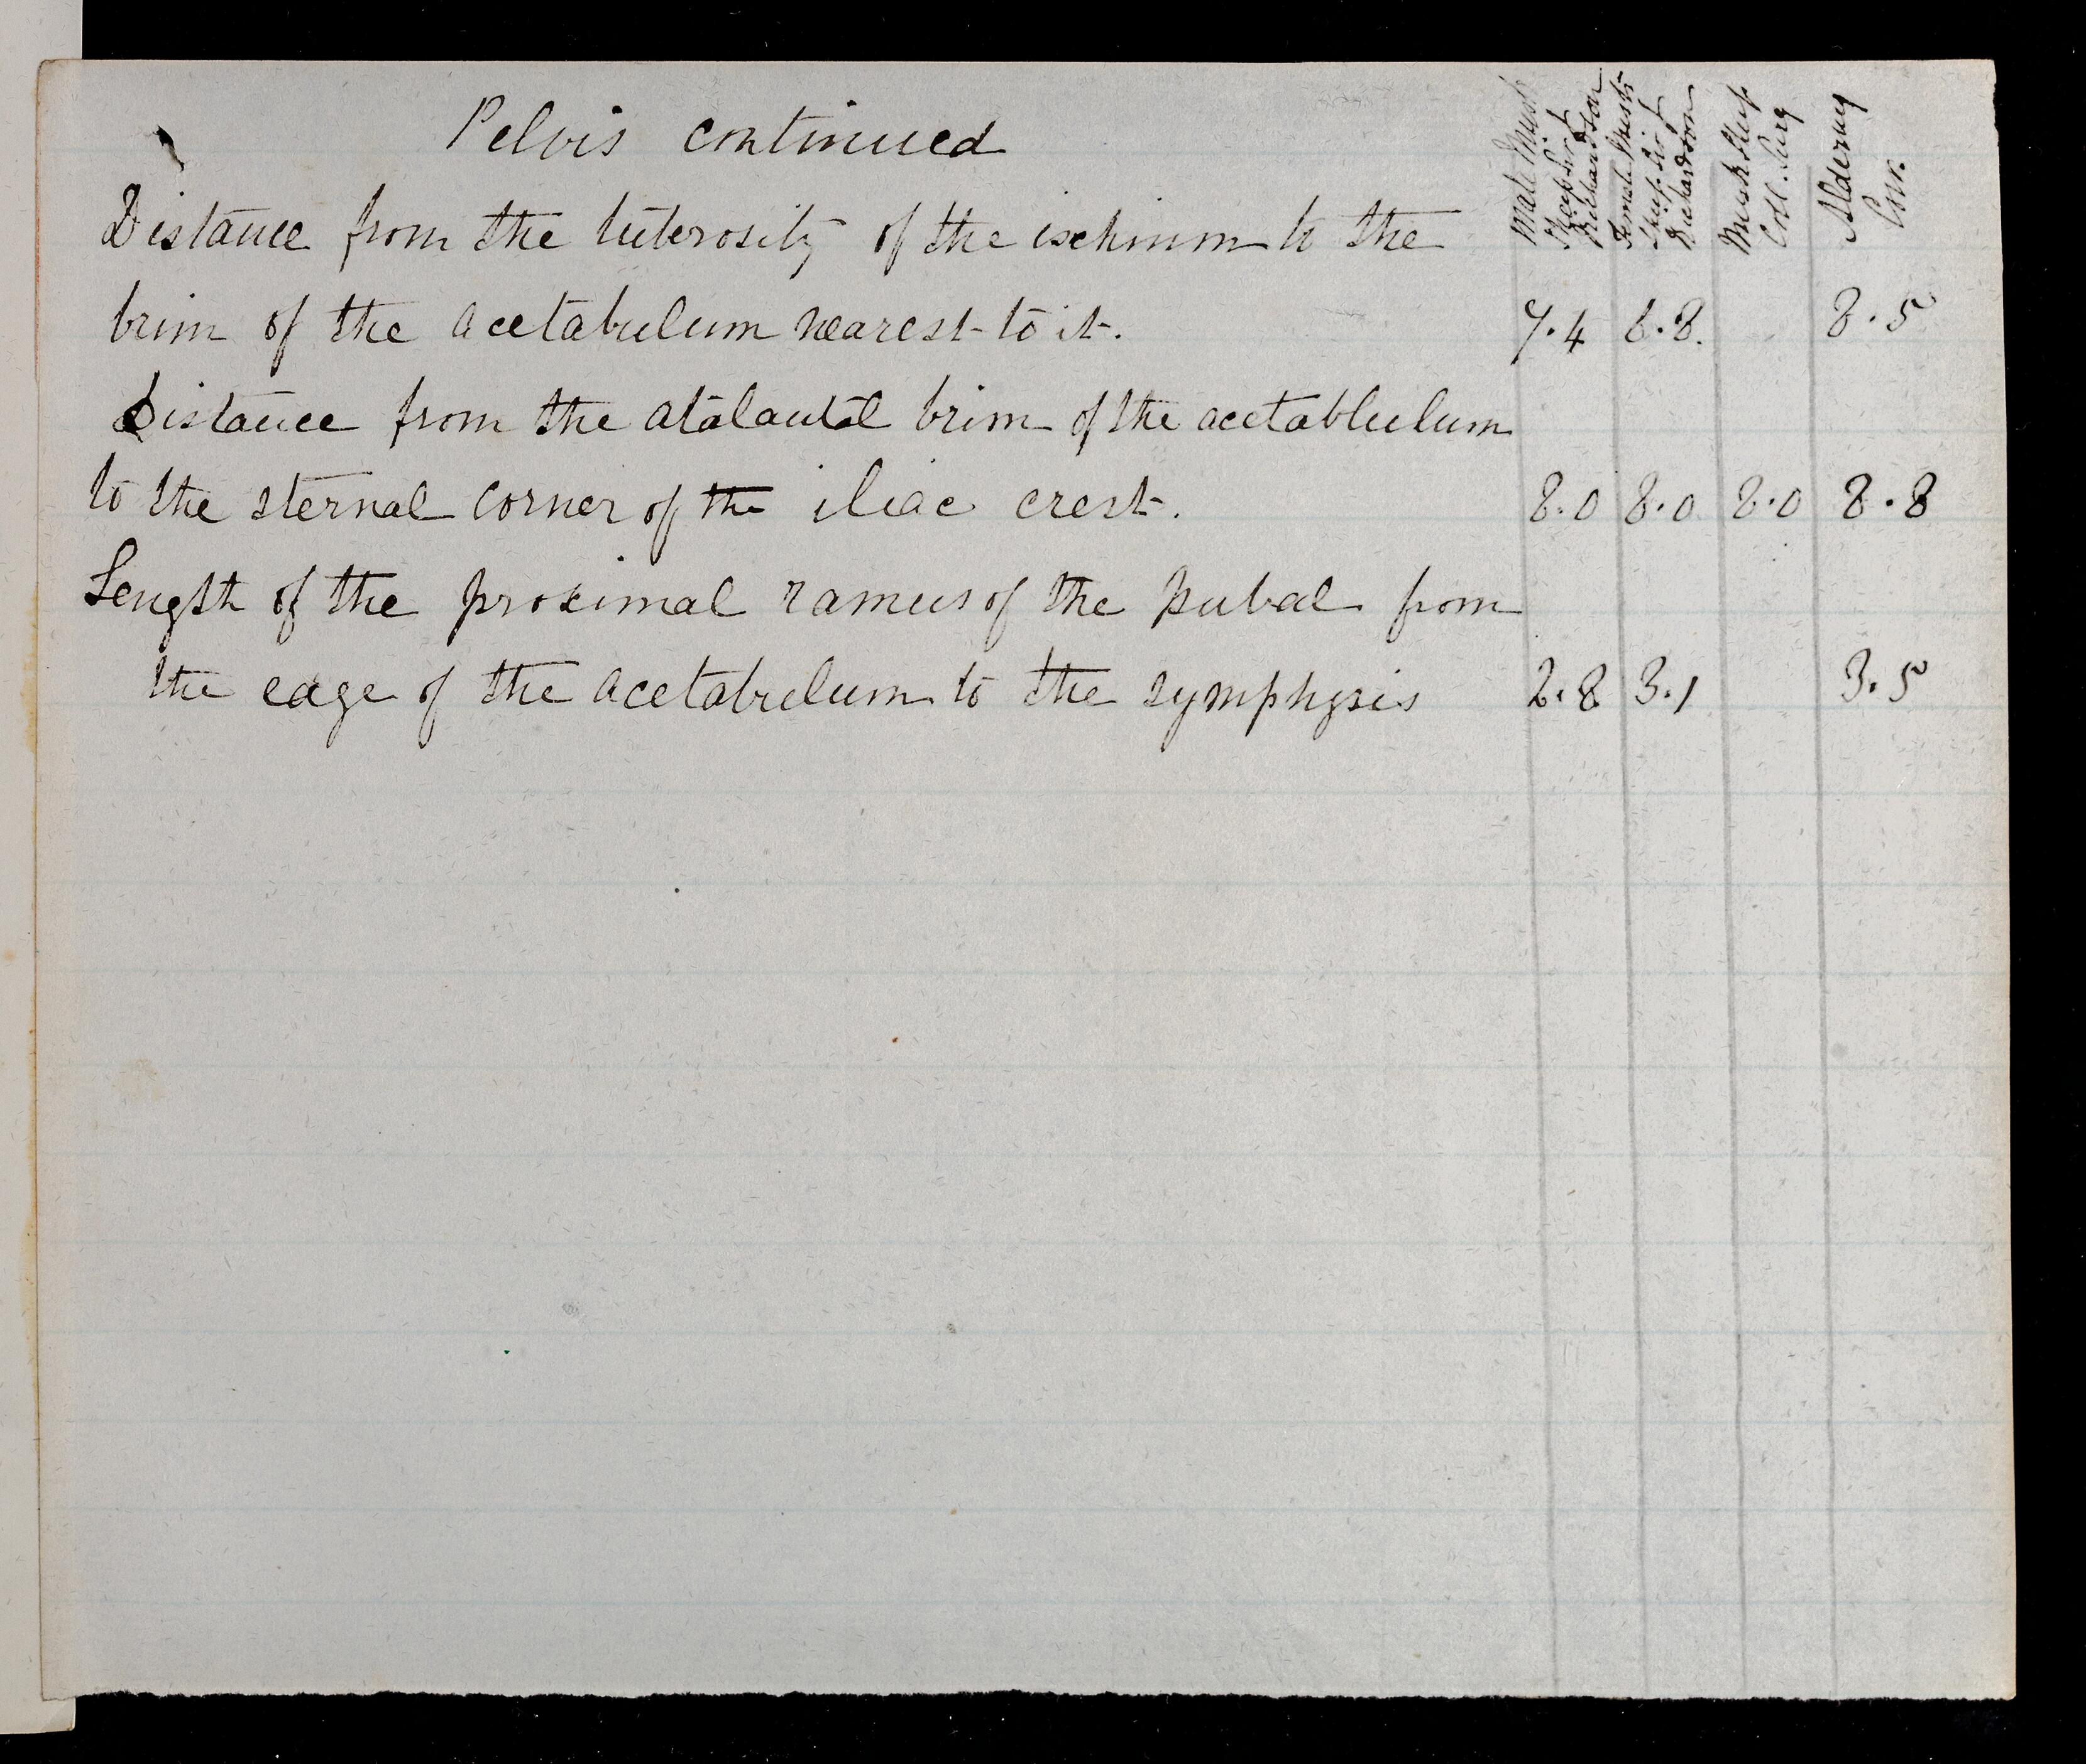 Pelvis continued
Male Musk Sheep Sir J Richardson
Female Musk Sheep Sir J Richardson
Musk Sheep Coll. Surg
Alderney Cow.
Distance from the tuberosity of the ischium to the
brim of the acetabulum nearest to it. 7.4 6.8. 8.5
Distance from the atalantal brim of the acetablulum
to the sternal corner of the iliac crest. 8.0 8.0 8.0 8.8
Length of the proximal ramus of the pubal from
the edge of the acetabulum to the symphysis 2.8 3.1 3.5